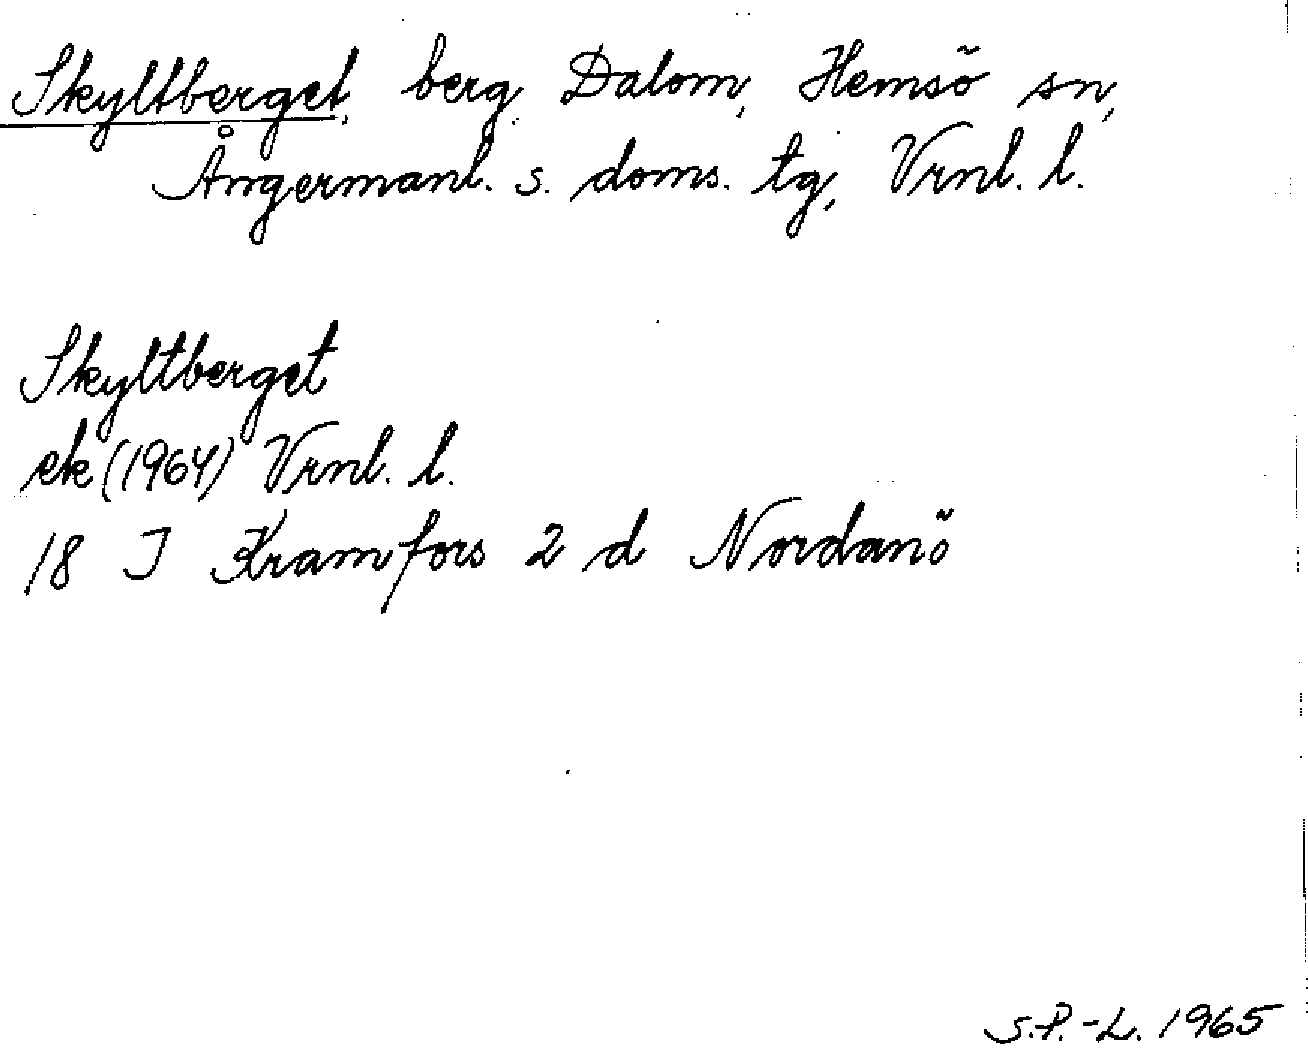 Skyltberget, berg, Dalom, Hemsö sn,
Ångermanl. s. doms. tg, Vrnl. l.
Skyltberget
ek (1964) Vrnl. l.
18 I Kramfors 2 d Nordanö
S.P.-L. 1965